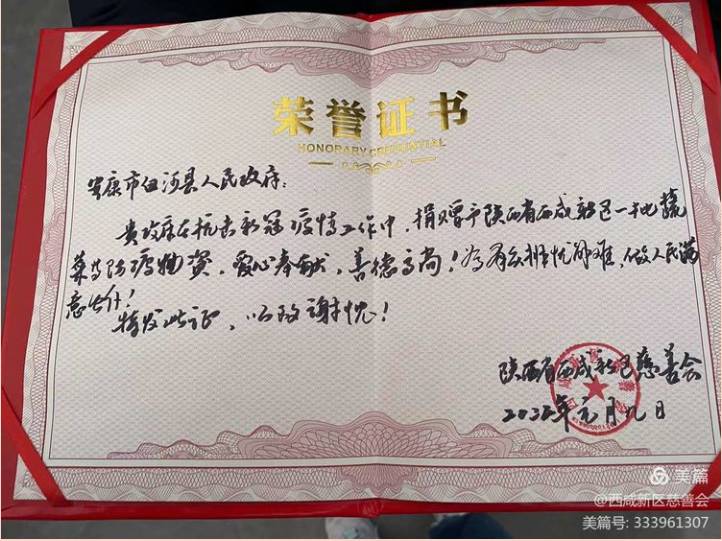 荣誉证书
HONORARY CREDENTIAL
安康市白河县人民政府：
贵政府在抗击新冠疫情工作中，捐赠于陕西省西咸新区一批蔬
菜等防疫物资，爱心奉献，善德高尚！为百分排忧解难，做人民满
意
特发此证，以致谢忱！
陕西省西咸新区慈善会
2022年元月九日
美篇
@西咸新区慈善会
美篇号: 333961307